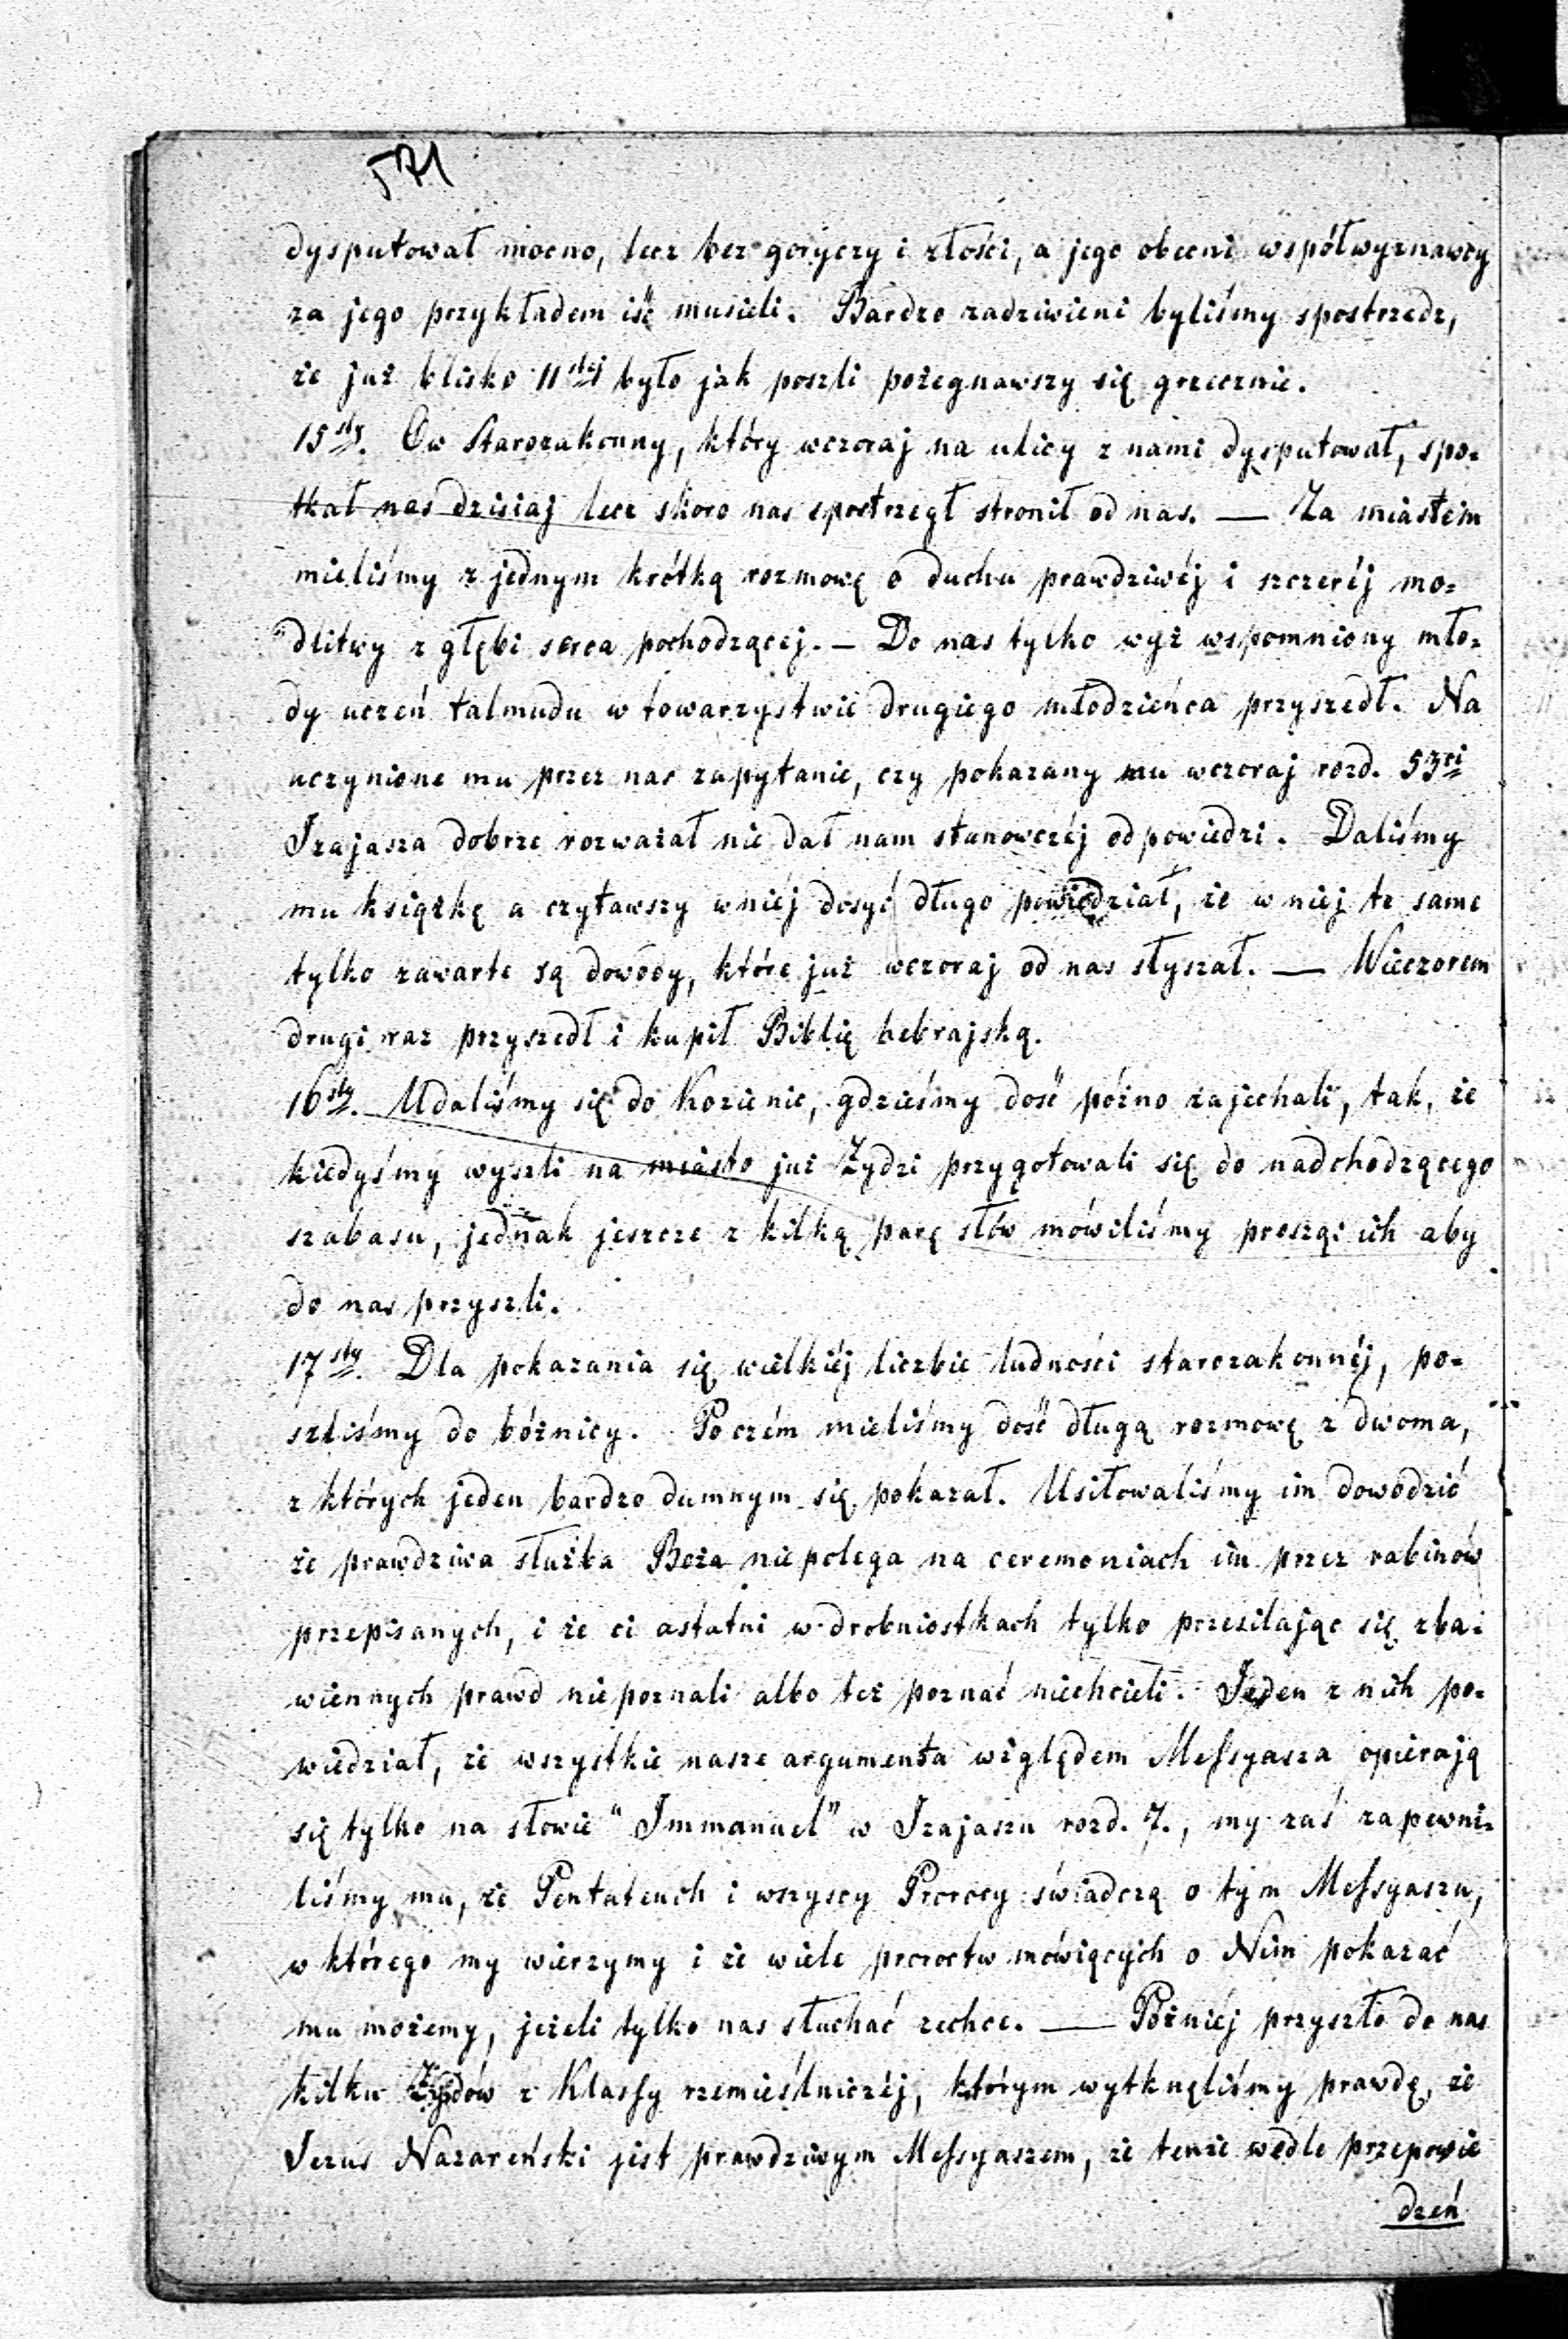 571
dysputował mocno, lecz bez goryczy i złości, a jego obecni współwyznawcy
za jego przykładem iść musieli. Bardzo zadziwieni byliśmy spostrzedz,
że już blisko 11stej było jak poszli pożegnawszy się grzecznie.
15sty. Ow Starozakonny, który wczoraj na ulicy z nami dysputował, spo-
tkał nas dzisiaj lecz skoro nas spostrzegł stronił od nas. — Za miastem
mieliśmy z jednym krótką rozmowę o duchu prawdziwéj i szczeréj mo-
dlitwy z głębi serca pochodzącej. — Do nas tylko wyż wspomniony mło-
dy uczeń talmudu w towarzystwie drugiego młodzieńca przyszedł. Na
uczynione mu przez nas zapytanie, czy pokazany mu wczoraj rozd. 53ci
Izajasza dobrze rozważał nie dał nam stanowczéj odpowiedzi. Daliśmy
mu książkę a czytawszy w niéj dosyć długo powiedział, że w niéj te same
tylko zawarte są dowody, które już wczoraj od nas słyszał. — Wieczorem
drugi raz przyszedł i kupił Biblię hebrajską.
16sty. Udaliśmy się do Kozienic, gdzieśmy dość późno zajechali, tak, że
kiedyśmy wyszli na miasto już Żydzi przygotowali się do nadchodzącego
szabasu, jednak jeszcze z kilką parę słów mówiliśmy prosząc ich aby
do nas przyszli.
17sty. Dla pokazania się wielkiéj liczbie ludności starozakonnéj, po-
szliśmy do bóżnicy. Poczém mieliśmy dość długą rozmowę z dwoma,
z których jeden bardzo dumnym się pokazał. Usiłowaliśmy im dowodzić
że prawdziwa służba Boża niepolega na ceremoniach im przez rabinów
przepisanych, i że ci astatni w drobniostkach tylko przesilając się zba-
wiennych prawd niepoznali albo też poznać niechcieli. Jeden z nich po-
wiedział, że wszystkie nasze argumenta względem Messyasza opierają
się tylko na słowie "Immanuel" w Izajaszu rozd. 7., my zaś zapewni-
liśmy mu, że Pentateuch i wszyscy Prorocy świadczą o tym Messyaszu,
w którego my wierzymy i że wiele proroctw mówiących o Nim pokazać
mu możemy, jeżeli tylko nas słuchać zechce. — Poźniéj przyszło do nas
kilku Żydów z Klassy rzemieślniczéj, którym wytknęliśmy prawdę, że
Jezus Nazareński jest prawdziwym Messyaszem, że tenże wedle przepowie
dzeń